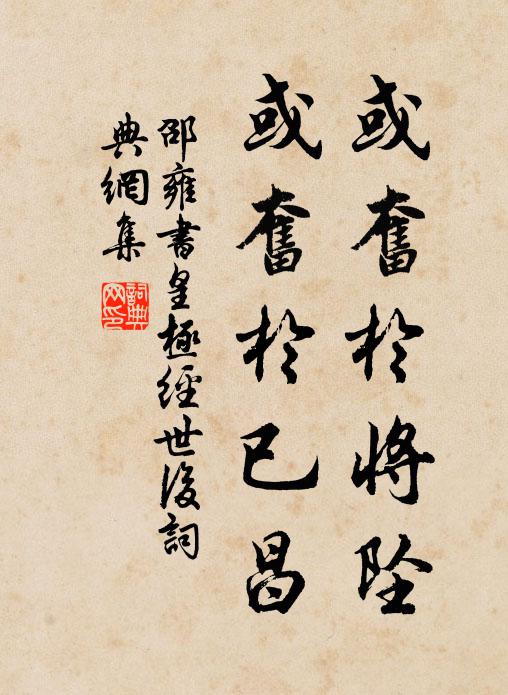 或奮於將墜
或奮於已昌
邵雍書皇極經世後詞
典網集
詞典網印